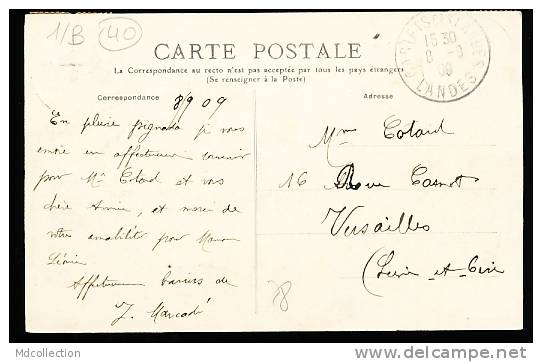 1/B 40
CARTE POSTALE
La Correspondance au recto n'est pas acceptée par tous les pays étrangers
(Se renseigner à la Poste)
Correspondance
Adresse
15 30
8 - 9
09
LANDES
8/9 09
En pleine pignada je vous
envoie un affectueux souvenir
pour Mr Cotard et vous
chère Amie, et merci de
votre amabilité pour Maman
Léonie
Affectueux baisers de
J. Marcadé
Mme Cotard
16 Rue Carnot
Versailles
(Seine-et-Oise
78
Mdcollection
http://www.delcampe.net